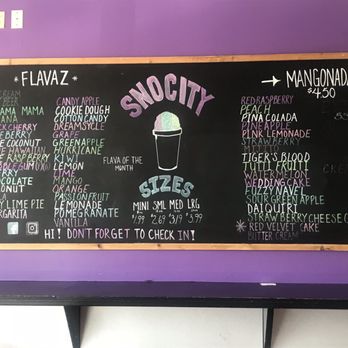 * FLAVAZ *
CREAM
BEER
MAMA MAMA
CHERRY
BERRY
COCONUT
HAWAIIAN
RASPBERRY
BUBBLEGUM
KEY LIME PIE
CANDY APPLE
COOKIE DOUGH
COTTON CANDY
DREAMSYCLE
GRAPE
GREEN APPLE
HURRICANE
KIWI
LEMON
LIME
MANGO
ORANGE
PASSIONFRUIT
LEMONADE
POMEGRANATE
VANILLA
SNOCITY
FLAVA OF THE
MONTH
SIZES
MINI SML MED LRG
1.99 $2.69 $3.19 $3.99
→ MANGONADA
$4.50
RED RASPBERRY
PEACH
PINA COLADA
PINEAPPLE
PINK LEMONADE
STRAWBERRY
TIGER'S BLOOD
TUTTI FRUTTI
WATERMELON
WEDDING CAKE
FUZZY NAVEL
SOUR GREEN APPLE
DAIQUIRI
STRAWBERRY CHEESEC
* RED VELVET CAKE
BUTTER CREAM
HI! DON'T FORGET TO CHECK IN!